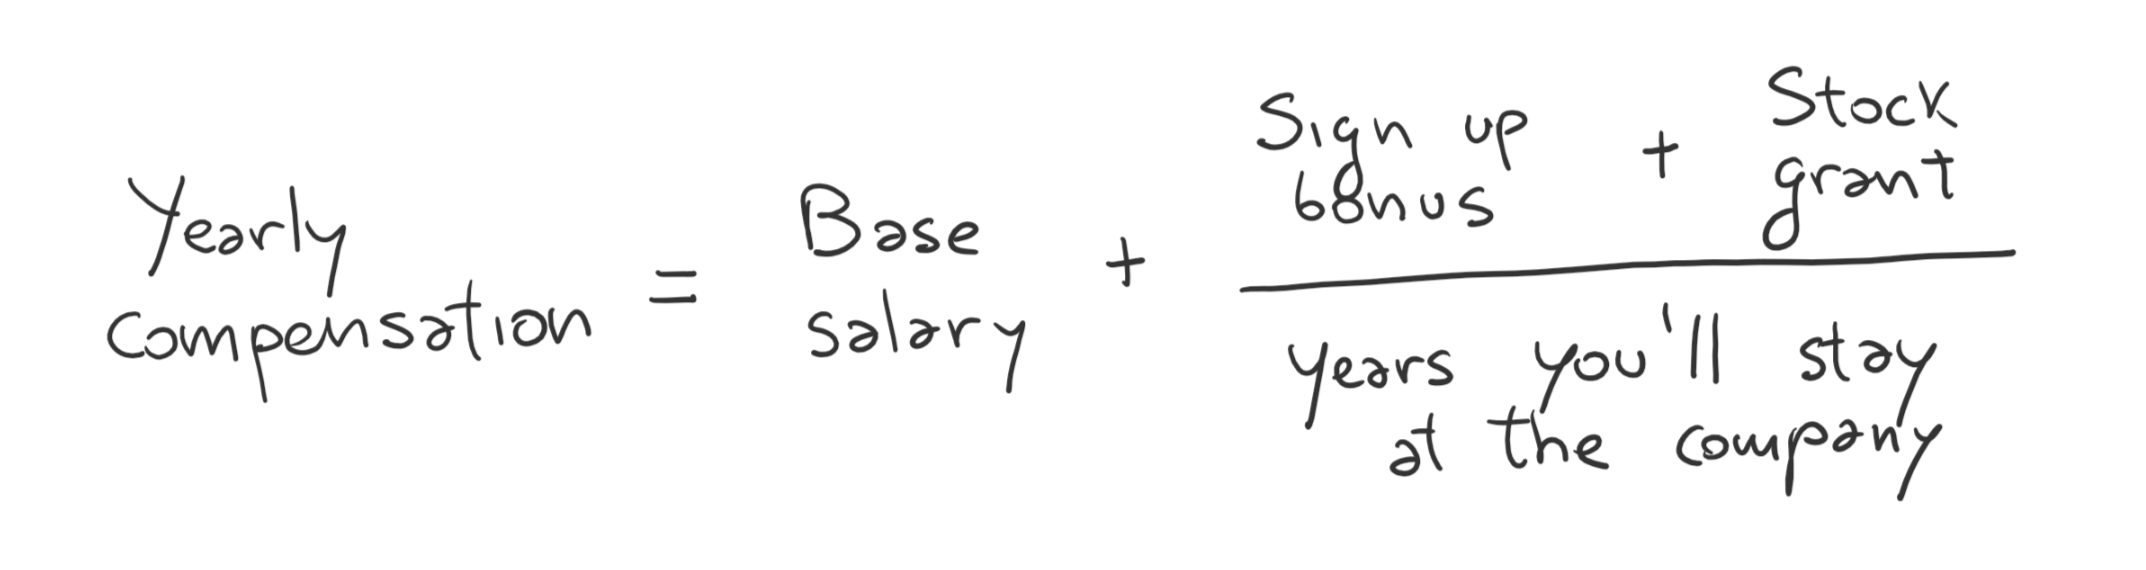 Yearly
compensation
=
Base
salary
+
Sign up
bonus
+
Stock
grant
years you'll stay
at the company